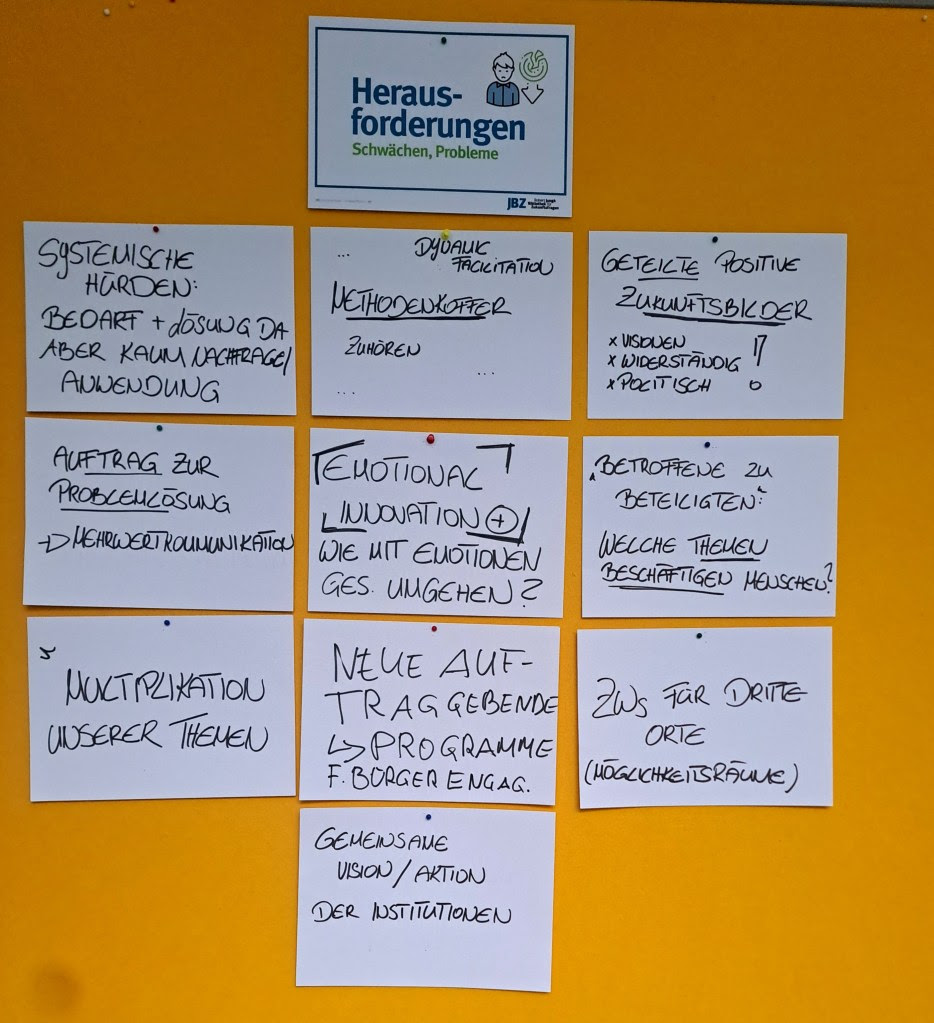 Heraus-
forderungen
Schwächen, Probleme
JBZ
Robert Jungk
Bibliothek für
Zukunftsfragen
SYSTEMISCHE
HÜRDEN:
BEDARF + LÖSUNG DA
ABER KAUM NACHFRAGE/
ANWENDUNG
... DYNAMIC
FACILITATION
METHODENKOFFER
ZUHÖREN
...
...
GETEILTE POSITIVE
ZUKUNFTSBILDER
x VISIONEN
x WIDERSTÄNDIG
x POLITISCH
AUFTRAG ZUR
PROBLEMLÖSUNG
→ MEHRWERTKOMMUNIKATION
EMOTIONAL
INNOVATION +
WIE MIT EMOTIONEN
GES. UMGEHEN?
"BETROFFENE ZU
BETEILIGTEN":
WELCHE THEMEN
BESCHÄFTIGEN MENSCHEN?
MULTIPLIKATION
UNSERER THEMEN
NEUE AUF-
TRAGGEBENDE
↳ PROGRAMME
F. BÜRGERENGAG.
ZWs FÜR DRITTE
ORTE
(MÖGLICHKEITSRÄUME)
GEMEINSAME
VISION/AKTION
DER INSTITUTIONEN